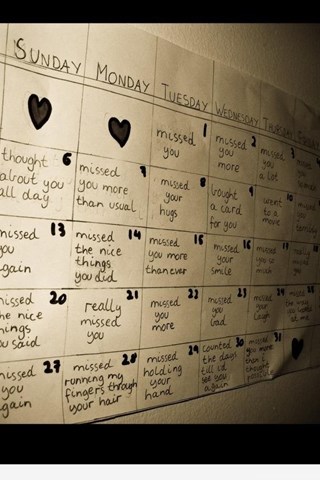 SUNDAY MONDAY TUESDAY WEDNESDAY THURSDAY
1
missed
you
2
missed
you
more
3
missed
you
a lot
6
thought
about you
all day
7
missed
you more
than usual
8
missed
your
hugs
9
bought
a card
for you
10
went
to a
movie
13
missed
you
again
14
missed
the nice
things
you did
15
missed
you more
than ever
16
missed
your
smile
missed
you so
much
20
missed
the nice
things
you said
21
really
missed
you
22
missed
you
more
23
missed
you
bad
24
missed
your
laugh
27
missed
you
again
28
missed
running my
fingers through
your hair
29
missed
holding
your
hand
30
counted
the days
till i'd
see you
again
31
missed
you more
than I
thought
possible